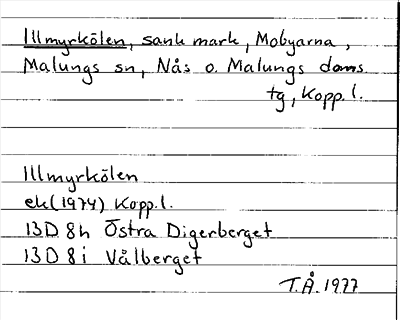 Illmyrkölen, sank mark, Mobyarna,
Malungs sn, Nås o. Malungs doms
tg, Kopp. l.
Illmyrkölen
ek (1974) Kopp. l.
13D 8h Östra Digerberget
13D 8i Vålberget
T.Å. 1977